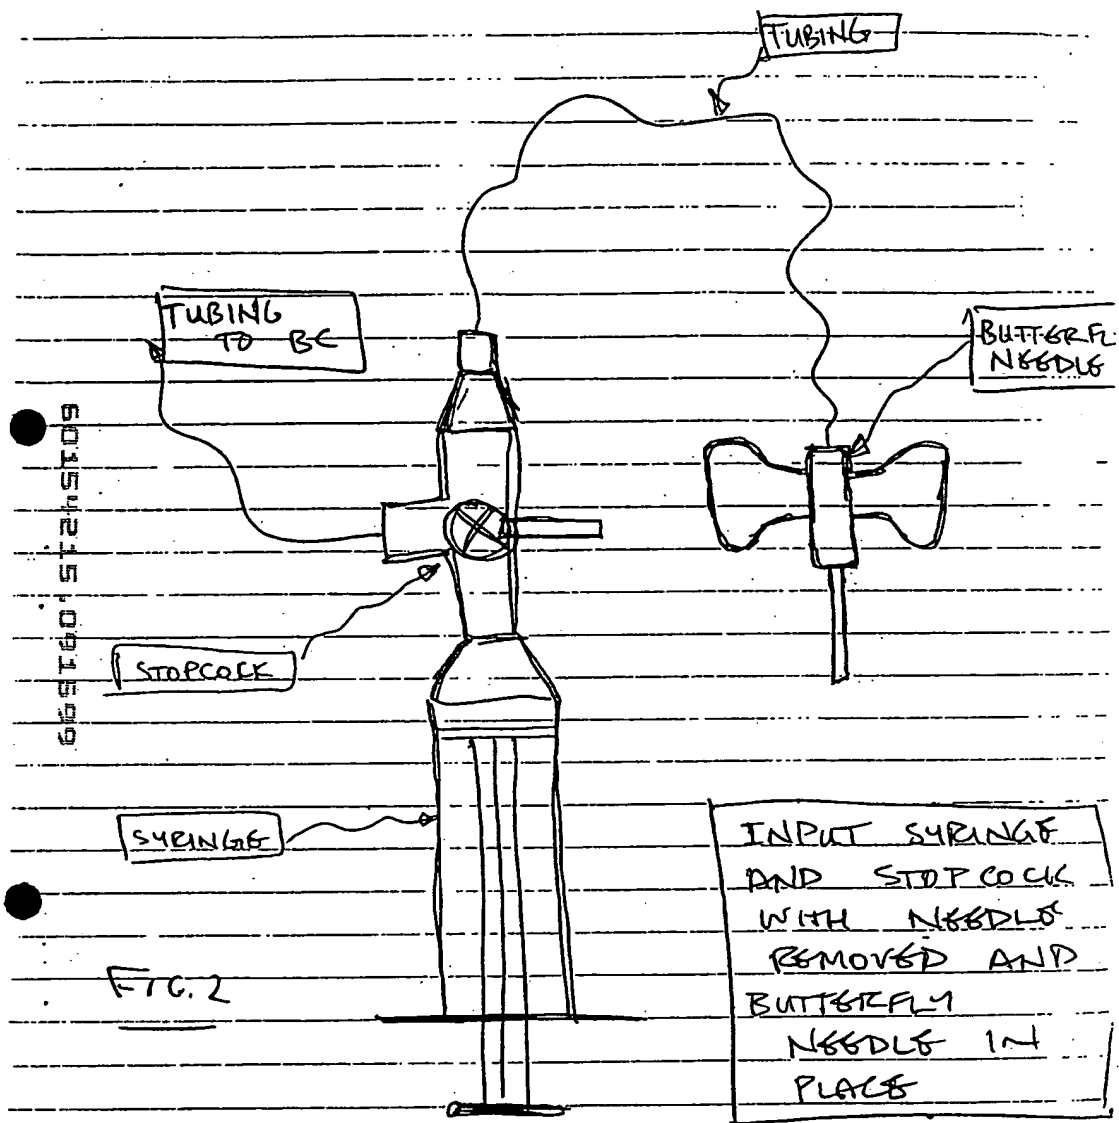 TUBING
TUBING
TO BE
BUTTERFL
NEEDLE
60154215.091599
STOPCOCK
SYRINGE
INPUT SYRINGE
AND STOPCOCK
WITH NEEDLE
REMOVED AND
BUTTERFLY
NEEDLE IN
PLACE
FIG. 2